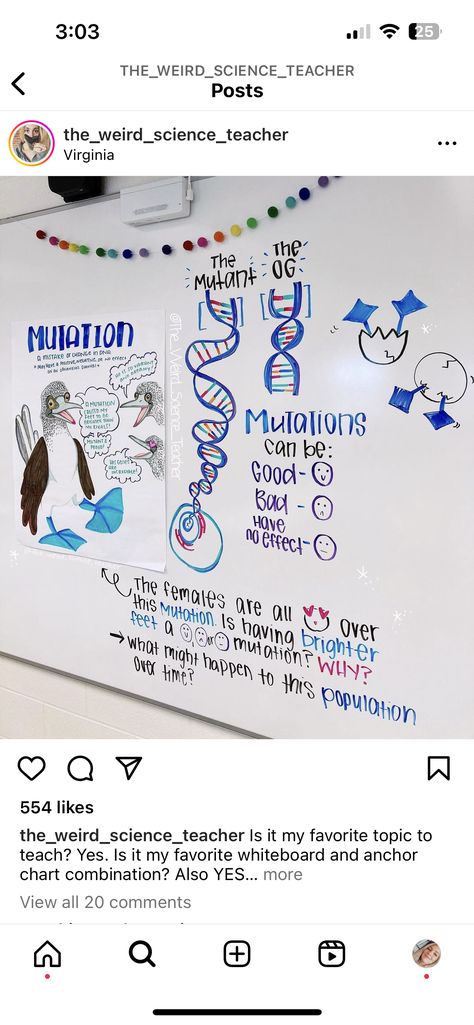 3:03
25
THE_WEIRD_SCIENCE_TEACHER
Posts
the_weird_science_teacher
Virginia
The Mutant
The OG
@The_Weird_Science_Teacher
MUTATION
A MISTAKE OR CHANGE IN DNA
* MAY HAVE A POSITIVE, NEGATIVE, OR NO EFFECT
ON AN ORGANISM'S
HE IS SO VIBRANT AND
A MUTATION CAUSED MY FEET TO BE BRIGHTER THAN MY RIVALS!
MUTANT & PROUD!
HIS GENES ARE INCREDIBLE!
Mutations
can be:
Good -
Bad -
Have
no effect -
The females are all over
this Mutation. Is having brighter
feet a or mutation? WHY?
→ What might happen to this population
over time?
554 likes
the_weird_science_teacher Is it my favorite topic to
teach? Yes. Is it my favorite whiteboard and anchor
chart combination? Also YES... more
View all 20 comments